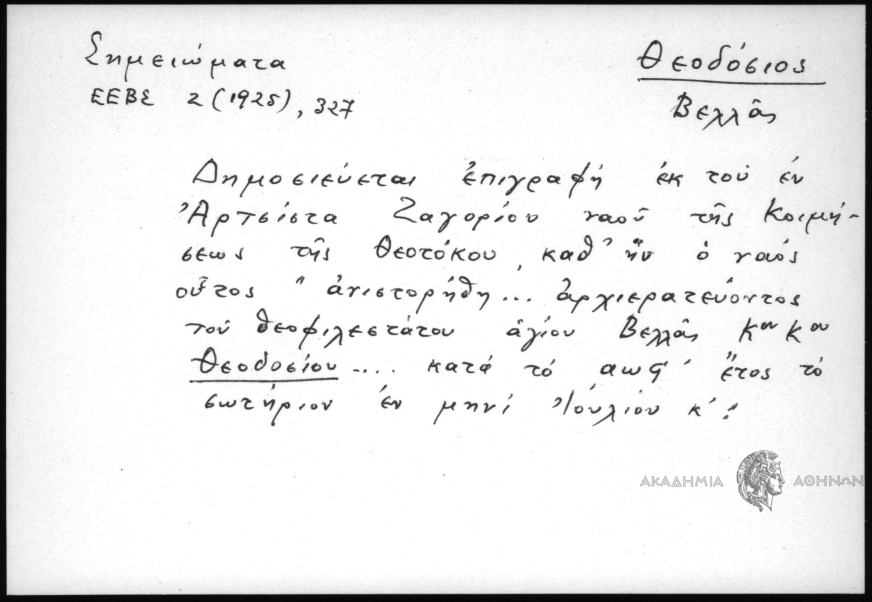 Σημειώματα
ΕΕΒΣ 2 (1925), 327
Θεοδόσιος
Βελλᾶς
Δημοσιεύεται ἐπιγραφή ἐκ τοῦ ἐν
Ἀρτσίστα Ζαγορίου ναοῦ τῆς Κοιμή-
σεως τῆς Θεοτόκου, καθ' ἥν ὁ ναός
οὗτος " ἀνιστορήθη... ἀρχιερατεύοντος
τοῦ θεοφιλεστάτου ἁγίου Βελλᾶς Κου Κου
Θεοδοσίου .... κατά τό αωϛ' ἔτος τό
σωτήριον ἐν μηνί Ἰουλίου κ'"
ΑΚΑΔΗΜΙΑ ΑΘΗΝΩΝ